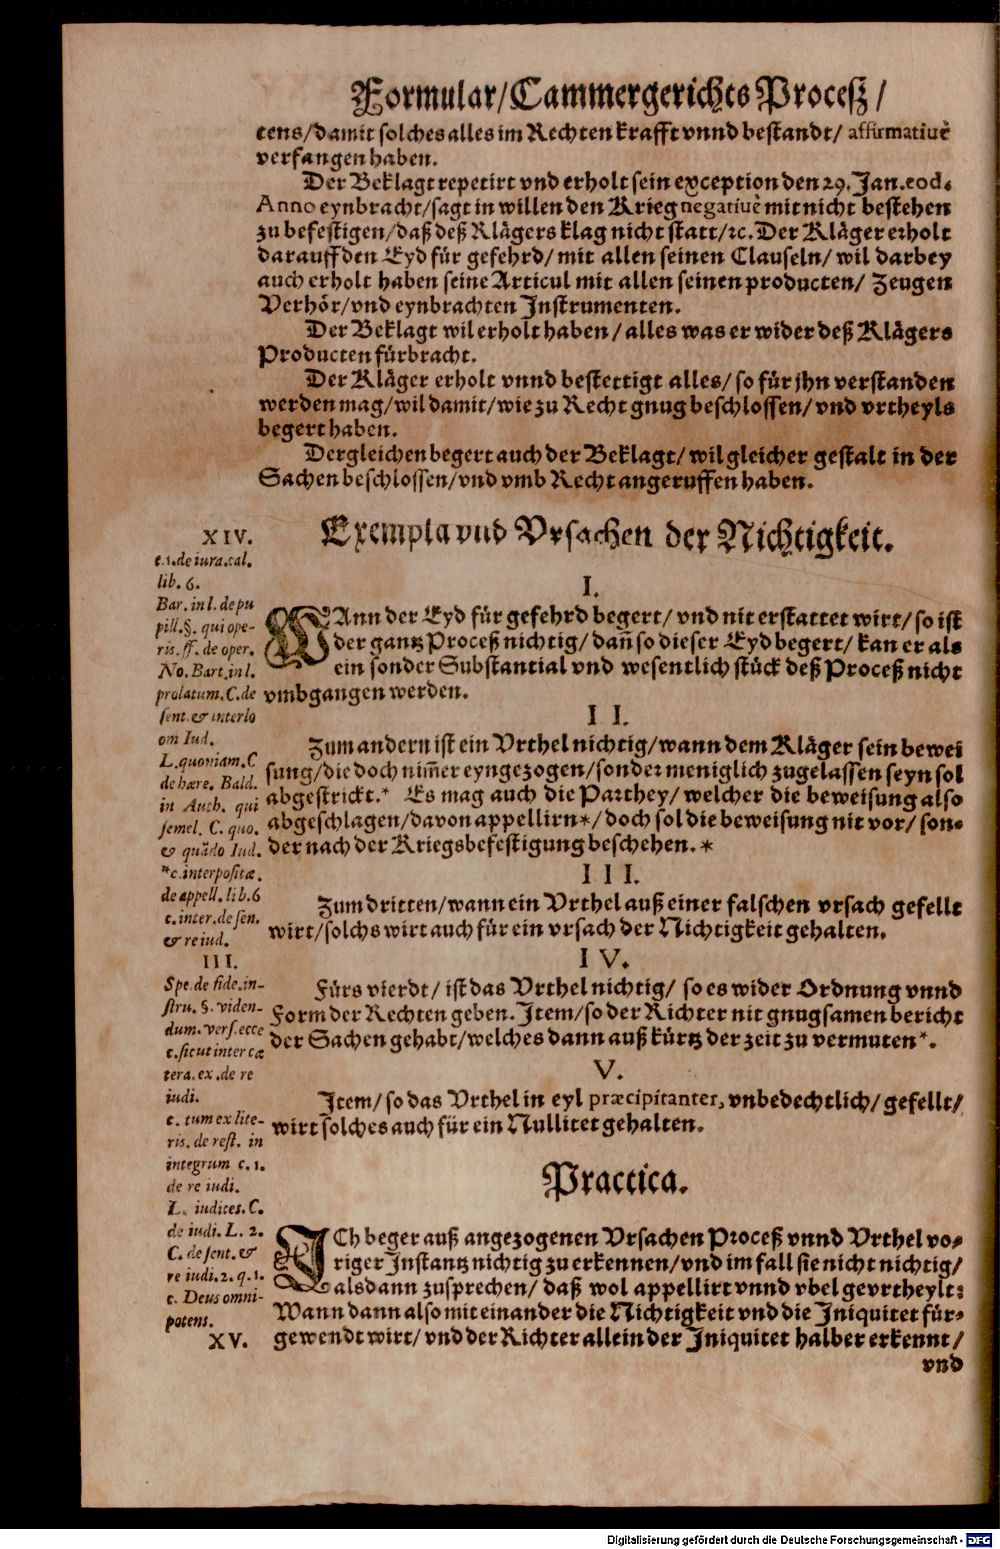 Formular/Cammergerichts Proceß/
tens/damit solches alles im Rechten krafft vnnd bestandt/ affirmatiuè
verfangen haben.
Der Beklagt repetirt vnd erholt sein exception den 29. Jan. eod.
Anno eynbracht/sagt in willen den Krieg negatiuè mit nicht bestehen
zu befestigen/daß deß Klägers klag nicht statt/ꝛc. Der Kläger erholt
darauff den Eyd für gefehrd/ mit allen seinen Clauseln/ wil darbey
auch erholt haben seine Articul mit allen seinen producten/ Zeugen
Verhör/vnd eynbrachten Instrumenten.
Der Beklagt wil erholt haben/ alles was er wider deß Klägers
Producten fürbracht.
Der Kläger erholt vnnd bestettigt alles/ so für jhn verstanden
werden mag/wil damit/wie zu Recht gnug beschlossen/vnd vrtheyls
begert haben.
Dergleichen begert auch der Beklagt/ wil gleicher gestalt in der
Sachen beschlossen/vnd vmb Recht angeruffen haben.
XIV.
c.1.de iura.cal.
lib. 6.
Bar. in l. de pu
pill.§. qui ope-
ris. ff. de oper.
No. Bart. in l.
prolatum. C. de
sent. & interlo
om Iud.
L. quoniam. C
de hære. Bald.
in Auth. qui
semel. C. quo.
& quãdo Iud.
*c. interpositæ.
de appell. lib. 6
c. inter. de sen.
& re iud.
III.
Spe. de fide. in-
stru. §. viden-
dum. vers. ecce
c. sicut inter cæ
tera. ex. de re
iudi.
c. tum ex lite-
ris. de rest. in
integrum c. 1.
de re iudi.
L. iudices. C.
de iudi. L. 2.
C. de sent. &
re iudi. 2. q. 1.
c. Deus omni-
potens.
XV.
Exempla vnd Vrsachen der Nichtigkeit.
I.
WAnn der Eyd für gefehrd begert/ vnd nit erstattet wirt/ so ist
der gantz Proceß nichtig/ dañ so dieser Eyd begert/ kan er als
ein sonder Substantial vnd wesentlich stück deß Proceß nicht
vmbgangen werden.
II.
Zum andern ist ein Vrthel nichtig/wann dem Kläger sein bewei
sung/die doch nim̃er eyngezogen/sonder meniglich zugelassen seyn sol
abgestrickt.* Es mag auch die Parthey/ welcher die beweisung also
abgeschlagen/davon appellirn*/ doch sol die beweisung nit vor/ son-
der nach der Kriegsbefestigung beschehen.*
III.
Zum dritten/wann ein Vrthel auß einer falschen vrsach gefellt
wirt/solchs wirt auch für ein vrsach der Nichtigkeit gehalten.
IV.
Fürs vierdt/ ist das Vrthel nichtig/ so es wider Ordnung vnnd
Form der Rechten geben. Item/so der Richter nit gnugsamen bericht
der Sachen gehabt/welches dann auß kürtz der zeit zu vermuten*.
V.
Item/ so das Vrthel in eyl præcipitanter, vnbedechtlich/ gefellt/
wirt solches auch für ein Nullitet gehalten.
Practica.
ICh beger auß angezogenen Vrsachen Proceß vnnd Vrthel vo-
riger Instantz nichtig zu erkennen/vnd im fall sie nicht nichtig/
alsdann zusprechen/ daß wol appellirt vnnd vbel gevrtheylt:
Wann dann also mit einander die Nichtigkeit vnd die Iniquitet für-
gewendt wirt/ vnd der Richter allein der Iniquitet halber erkennt/
vnd
Digitalisierung gefördert durch die Deutsche Forschungsgemeinschaft - DFG